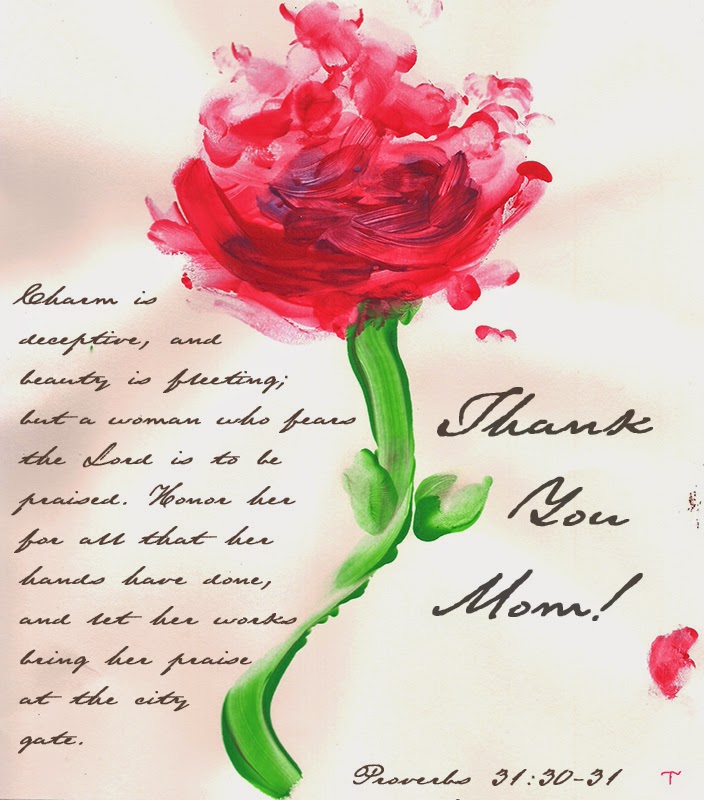 Charm is
deceptive, and
beauty is fleeting;
but a woman who fears
the Lord is to be
praised. Honor her
for all that her
hands have done,
and let her works
bring her praise
at the city
gate.
Thank
You
Mom!
Proverbs 31:30-31
T